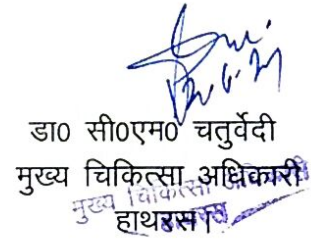 डा0 सी0एम0 चतुर्वेदी
मुख्य चिकित्सा अधिकारी
मुख्य चिकित्सा अधिकारी
हाथरस।